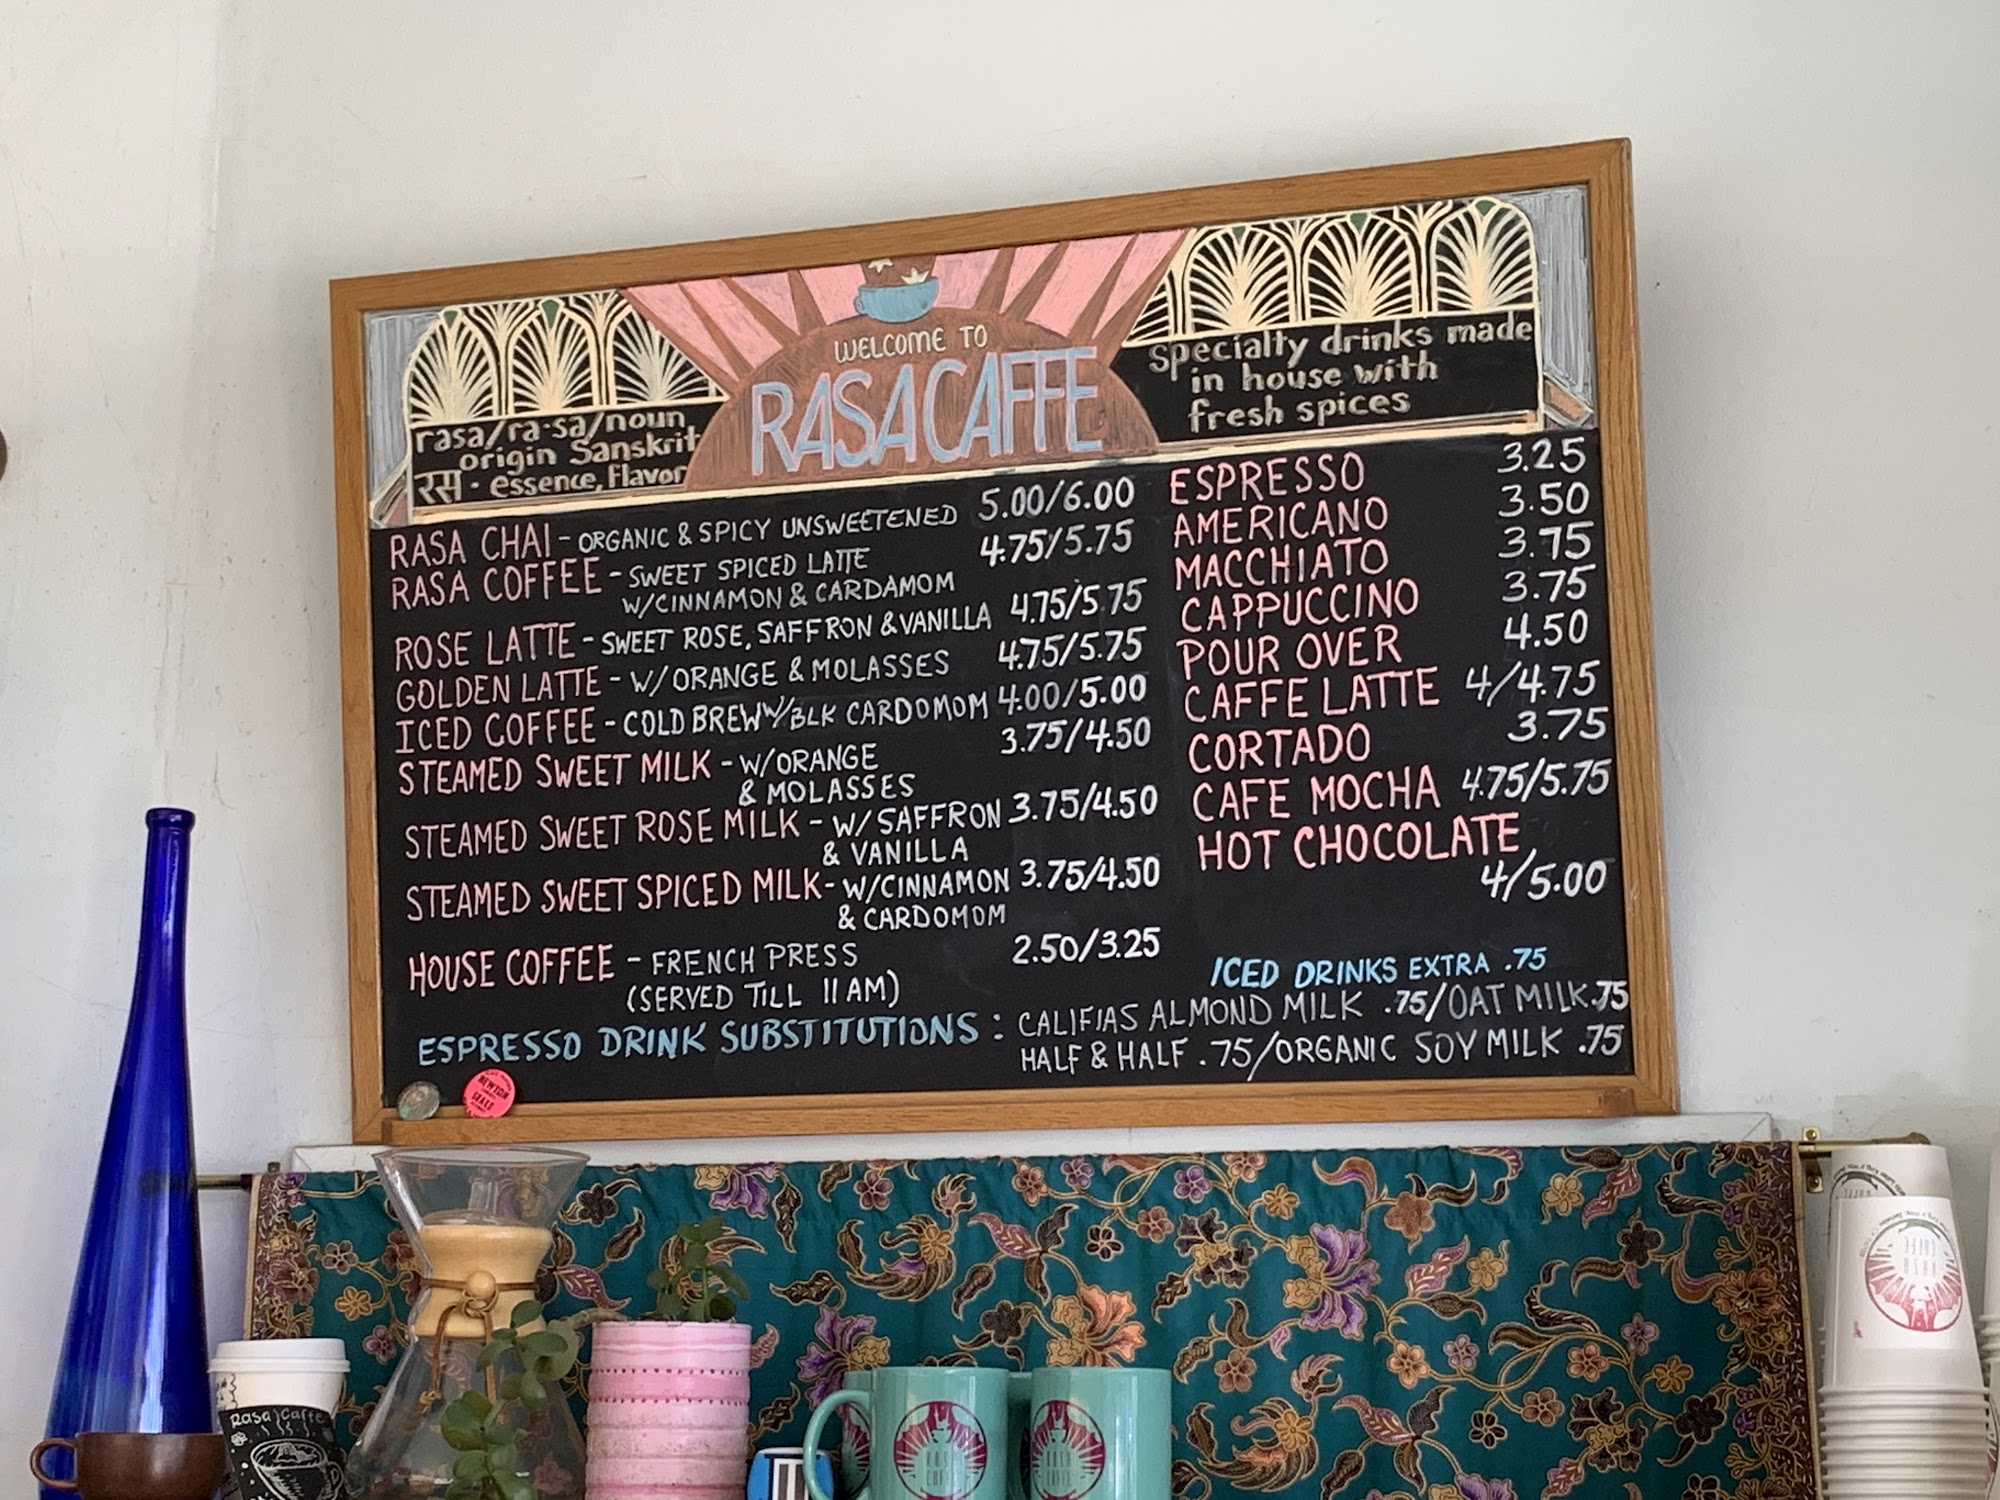 WELCOME TO
RASA CAFFE
rasa/ra·sa/noun
origin Sanskrit
रस · essence, flavor
Specialty drinks made
in house with
fresh spices
RASA CHAI - ORGANIC & SPICY UNSWEETENED 5.00/6.00
RASA COFFEE - SWEET SPICED LATTE 4.75/5.75
W/CINNAMON & CARDAMOM
ROSE LATTE - SWEET ROSE, SAFFRON & VANILLA 4.75/5.75
GOLDEN LATTE - W/ORANGE & MOLASSES 4.75/5.75
ICED COFFEE - COLD BREW W/BLK CARDOMOM 4.00/5.00
STEAMED SWEET MILK - W/ORANGE 3.75/4.50
& MOLASSES
STEAMED SWEET ROSE MILK - W/SAFFRON 3.75/4.50
& VANILLA
STEAMED SWEET SPICED MILK - W/CINNAMON 3.75/4.50
& CARDOMOM
HOUSE COFFEE - FRENCH PRESS 2.50/3.25
(SERVED TILL 11 AM)
ESPRESSO 3.25
AMERICANO 3.50
MACCHIATO 3.75
CAPPUCCINO 3.75
POUR OVER 4.50
CAFFE LATTE 4/4.75
CORTADO 3.75
CAFE MOCHA 4.75/5.75
HOT CHOCOLATE
4/5.00
ICED DRINKS EXTRA .75
ESPRESSO DRINK SUBSTITUTIONS : CALIFIAS ALMOND MILK .75/OAT MILK .75
HALF & HALF .75/ORGANIC SOY MILK .75
NEWTON
Rasa Caffe
RASA
CAFFE
RASA
CAFFE
RASA
CAFFE